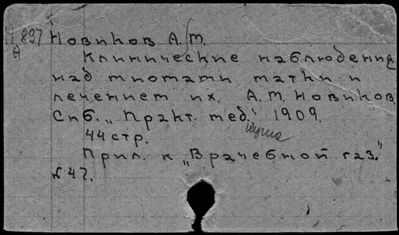 897 Новиков А. М.
Клинические наблюдения
над миомами матки и
лечением их. А. М. Новиков.
Спб. „Практ. мед." 1909.
44 стр.
Прил. к „Врачебной газ."
№ 47.